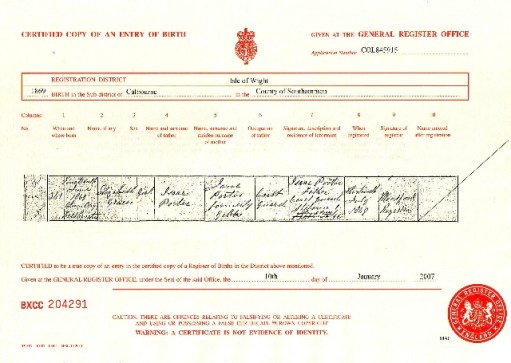 CERTIFIED COPY OF AN ENTRY OF BIRTH
GIVEN AT THE GENERAL REGISTER OFFICE
Application Number COL845915
REGISTRATION DISTRICT Isle of Wight
1869 BIRTH in the Sub-district of Calbourne in the County of Southampton
Columns: 1 2 3 4 5 6 7 8 9 10
No. When and where born Name, if any Sex Name and surname of father Name, surname and maiden surname of mother Occupation of father Signature, description and residence of informant When registered Signature of registrar Name entered after registration
Elizabeth Girl Isaac Porter Sarah Porter formerly Coast Guard Isaac Porter Father Coast Guard July 1869 Registrar
CERTIFIED to be a true copy of an entry in the certified copy of a Register of Births in the District above mentioned.
Given at the GENERAL REGISTER OFFICE, under the Seal of the said Office, the 10th day of January 2007
BXCC 204291
CAUTION: THERE ARE OFFENCES RELATING TO FALSIFYING OR ALTERING A CERTIFICATE
AND USING OR POSSESSING A FALSE CERTIFICATE
WARNING: A CERTIFICATE IS NOT EVIDENCE OF IDENTITY.
GENERAL REGISTER OFFICE
ENGLAND